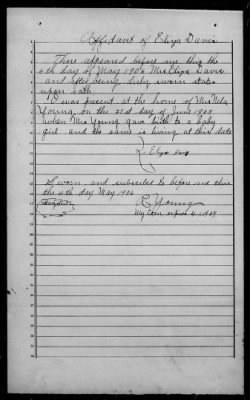 Affidavit of Eliza Davis
There appeared before me this the
4th day of May 1906 Mrs Eliza Davis
and after being duly sworn states
upon oath.
I was present at the home of Mrs
Young, on the 21st day of June 1905
when Mrs Young gave birth to a baby
girl and the same is living at this date
Eliza
Sworn and subscribed to before me this
the 4th day May 1906
Young
My Com expires 4-1909